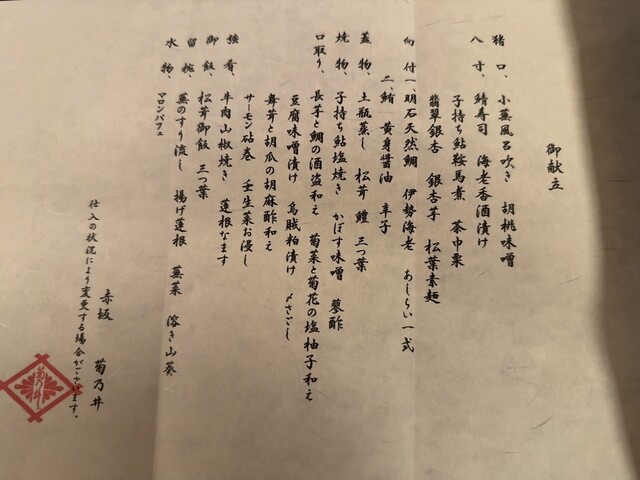 御献立
猪口、小蕪風呂吹き 胡桃味噌
八寸、鯖寿司 海老香酒漬け
子持ち鮎鞍馬煮 茶巾栗
翡翠銀杏 銀杏芋 松葉素麺
向付一、明石天然鯛 伊勢海老 あしらい一式
二、鮪 黄身醤油 辛子
蓋物、土瓶蒸し 松茸 鱧 三つ葉
焼物、子持ち鮎塩焼き かぼす味噌 蓼酢
口取り、長芋と鯛の酒盗和え 菊菜と菊花の塩柚子和え
豆腐味噌漬け 烏賊粕漬け 〆さごし
舞茸と胡瓜の胡麻酢和え
サーモン砧巻 壬生菜お浸し
強肴、牛肉山椒焼き 蓮根なます
御飯、松茸御飯 三つ葉
留椀、蕪のすり流し 揚げ蓮根 蕪菜 溶き山葵
水物、マロンパフェ
赤坂 菊乃井
仕入の状況により変更する場合がございます。
菊乃井